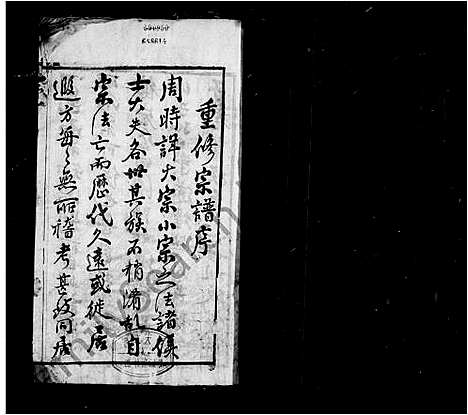 重修宗譜序
周時詳大宗小宗之法諸侯
士大夫各世其族不稍淆乱自
宗法亡而歷代久遠或徙居
遐方每々無所稽考甚致同居